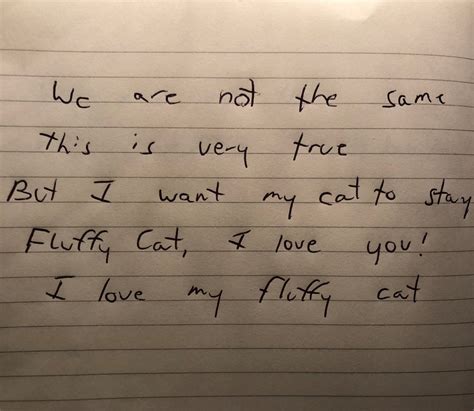 We are not the same
this is very true
But I want my cat to stay
Fluffy Cat, I love you!
I love my fluffy cat